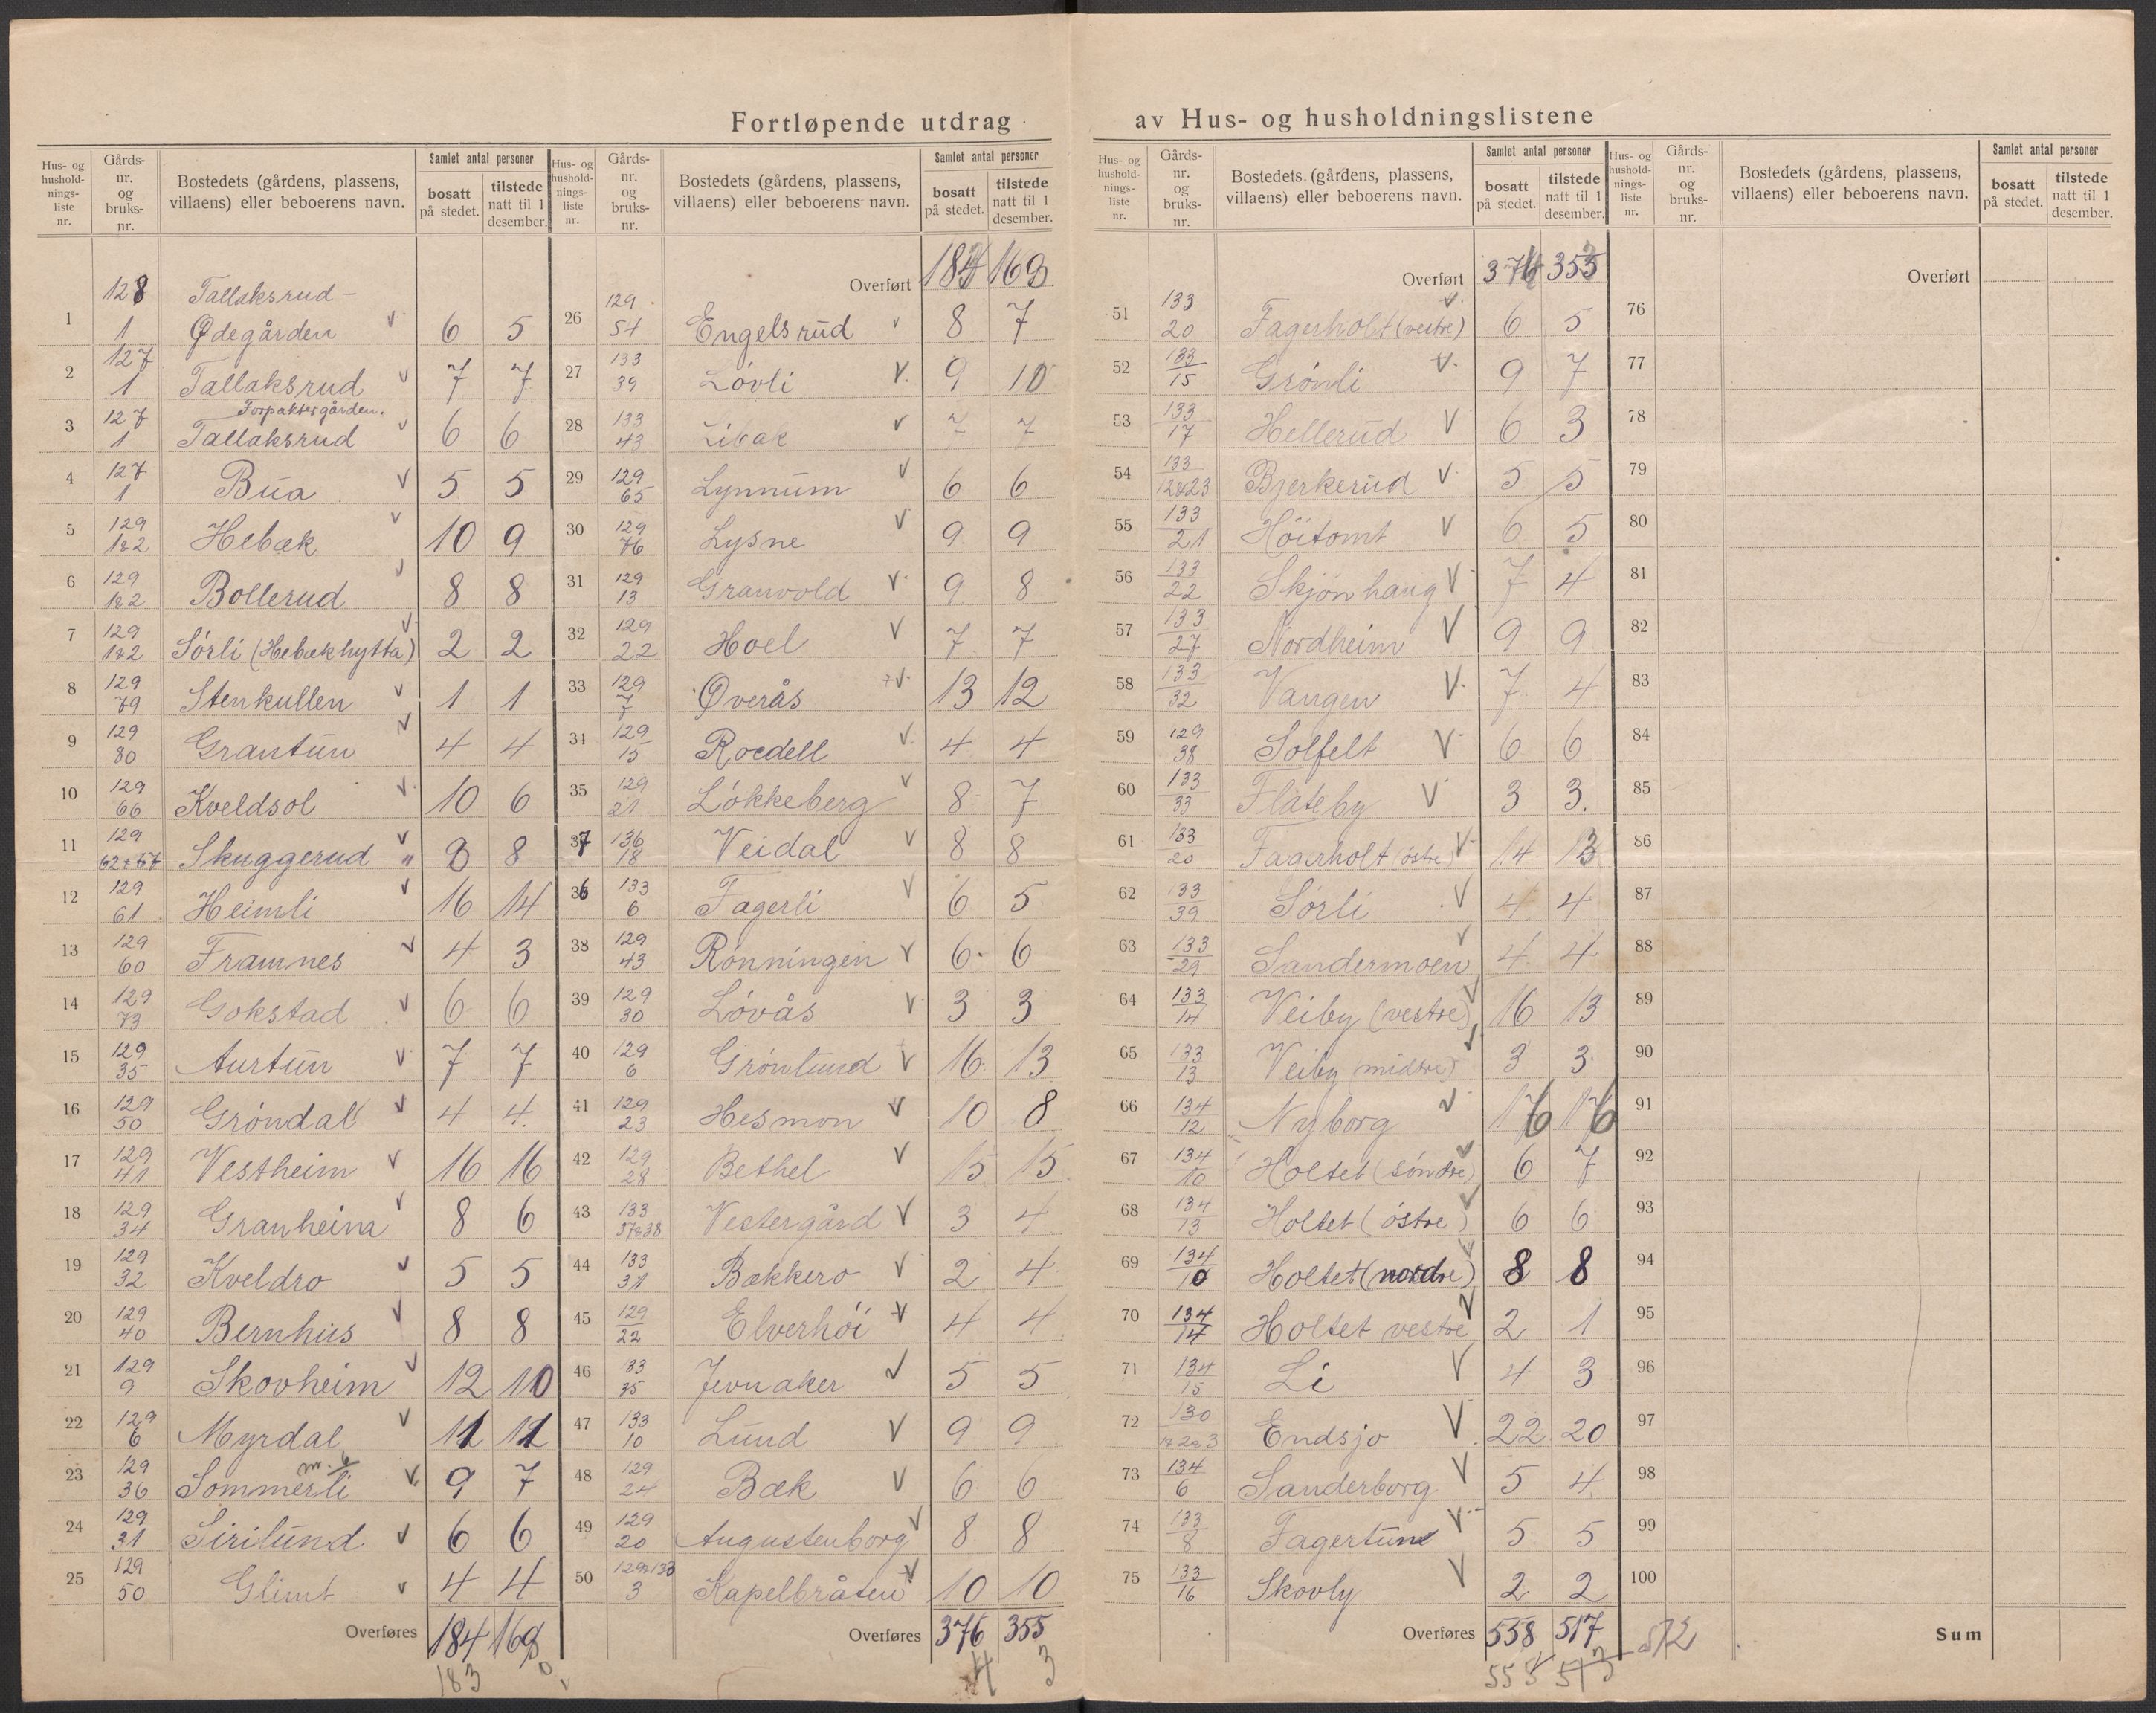 Fortløpende utdrag av Hus- og husholdningslistene
Hus- og husholdningsliste nr. Gårds-nr. og bruks-nr. Bostedets (gårdens, plassens, villaens) eller beboerens navn. Samlet antal personer bosatt på stedet. tilstede natt til 1 desember.
1 128/1 Tallaksrud- Ødegården v 6 5
2 127/1 Tallaksrud v 7 7
3 127/1 Tallaksrud Forpaktergården. v 6 6
4 127/1 Bua v 5 5
5 129/1&2 Hebæk v 10 9
6 129/1&2 Bollerud v 8 8
7 129/1&2 Sörli (Hebækhytta) v 2 2
8 129/79 Stenkullen v 1 1
9 129/80 Grantun v 4 4
10 129/66 Kveldsol v 10 6
11 129/62&57 Skuggerud v " 8 8
12 129/61 Heimli v 16 14
13 129/60 Framnes v 4 3
14 129/73 Gokstad v 6 6
15 129/35 Aurtun v 7 7
16 129/50 Gröndal v 4 4
17 129/41 Vestheim v 16 16
18 129/34 Granheim v 8 6
19 129/32 Kveldro v 5 5
20 129/40 Bernhus v 8 8
21 129/9 Skovheim v 12 10
22 129/6 Myrdal v 11 11
23 129/36 Sommerli v 9 7
24 129/31 Sirilund v 6 6
25 129/50 Glimt v 4 4
Overføres 184 169
183
Hus- og husholdningsliste nr. Gårds-nr. og bruks-nr. Bostedets (gårdens, plassens, villaens) eller beboerens navn. Samlet antal personer bosatt på stedet. tilstede natt til 1 desember.
Overført 184 169
26 129/54 Engelsrud v 8 7
27 133/39 Lövli v. 9 10
28 133/43 Libak v 7 7
29 129/65 Lynnum v 6 6
30 129/76 Lysne v 9 9
31 129/13 Granvold v. 9 8
32 129/22 Hoel v 7 7
33 129/7 Øverås v. 13 12
34 129/15 Roedell v. 4 4
35 129/21 Lökkeberg v 8 7
37 136/18 Veidal v 8 8
36 133/6 Fagerli v 6 5
38 129/43 Rönningen v 6 6
39 129/30 Lövås v 3 3
40 129/6 Grönlund v 16 13
41 129/23 Hesmon v 10 8
42 129/28 Bethel v 15 15
43 133/37&38 Vestergård v 3 4
44 133/31 Bækkero v 2 4
45 129/22 Elverhöi v 4 4
46 33/35 Jevnaker v 5 5
47 133/10 Lund v 9 9
48 129/24 Bæk v 6 6
49 129/20 Augustenborg v 8 8
50 129&133/3 Kapelbråten v 10 10
Overføres 376 355
4 3
Hus- og husholdningsliste nr. Gårds-nr. og bruks-nr. Bostedets (gårdens, plassens, villaens) eller beboerens navn. Samlet antal personer bosatt på stedet. tilstede natt til 1 desember.
Overført 376 355
51 133/20 Fagerholt (vestre) v. 6 5
52 133/15 Grönli v. 9 7
53 133/17 Hellerud v 6 3
54 133/12&23 Bjerkerud v 5 5
55 133/21 Höitomt v 6 5
56 133/22 Skjönhaug v 7 4
57 133/27 Nordheim v 9 9
58 133/32 Vangen v. 7 4
59 129/38 Solfelt v 6 6
60 133/33 Flateby v 3 3.
61 133/20 Fagerholt (östre) v 14 13
62 133/39 Sörli v 4 4
63 133/29 Sandermoen v 4 4
64 133/14 Veiby (vestre) v 16 13
65 133/13 Veiby (midtre) v 3 3
66 134/12 Nyborg v 16 16
67 134/10 Holtet (söndre) v 6 7
68 134/13 Holtet (östre) v 6 6
69 134/10 Holtet (nordre) v 8 8
70 134/14 Holtet vestre v 2 1
71 134/15 Li v 4 3
72 130/1&2&3 Endsjo v. 22 20
73 134/6 Sanderborg v 5 4
74 133/8 Fagertun v 5 5
75 133/16 Skovly v 2 2
Overføres 558 517 512
555 513
Hus- og husholdningsliste nr. Gårds-nr. og bruks-nr. Bostedets (gårdens, plassens, villaens) eller beboerens navn. Samlet antal personer bosatt på stedet. tilstede natt til 1 desember.
Overført
76
77
78
79
80
81
82
83
84
85
86
87
88
89
90
91
92
93
94
95
96
97
98
99
100
Sum